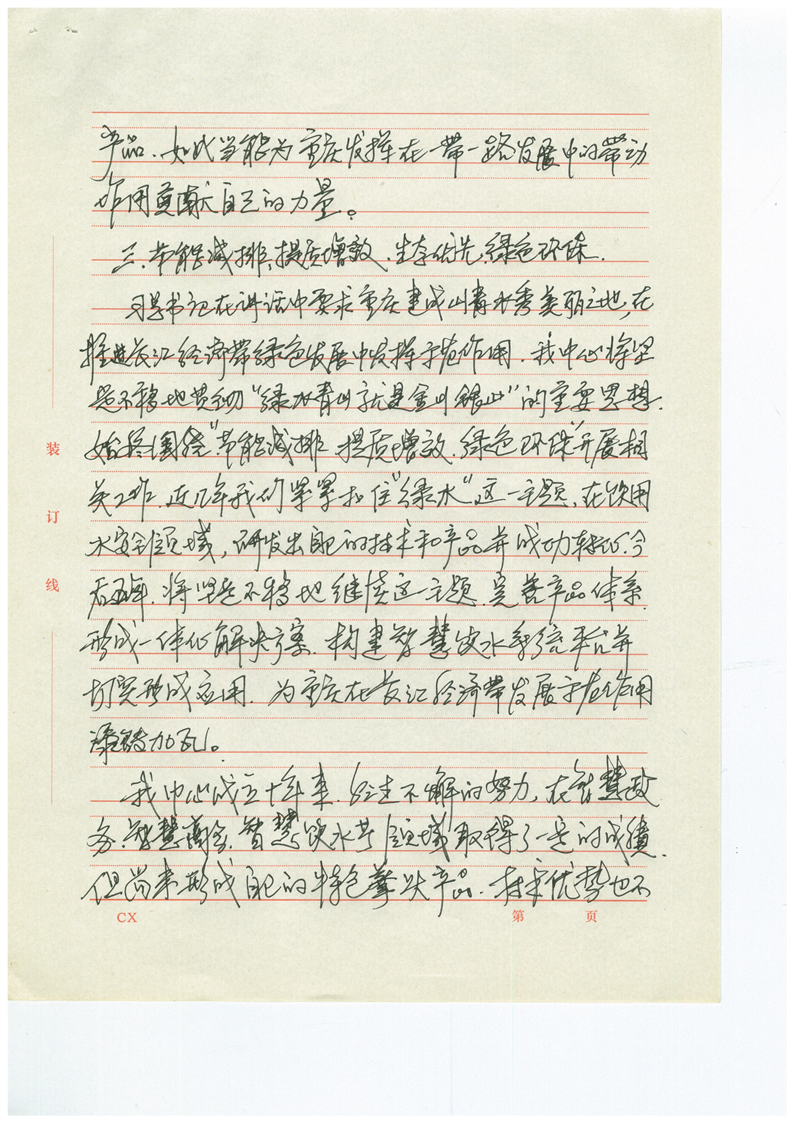 产品.如此当能为重庆发挥在一带一路发展中的带动
作用贡献自己的力量。
三.节能减排、提质增效.生态优先,绿色环保.
习总书记在讲话中要求重庆建成山清水秀美丽之地,在
推进长江经济带绿色发展中发挥示范作用.我中心将坚
定不移地贯彻“绿水青山就是金山银山”的重要思想.
始终围绕“节能减排、提质增效.绿色环保”开展相
关工作.近几年我们紧紧扣住“绿水”这一主题,在饮用
水安全领域,研发出自己的技术和产品并成功转化.今
后五年.将坚定不移地继续这一主题.完善产品体系.
形成一体化解决方案.构建智慧饮水系统平台并
切实形成应用.为重庆在长江经济带发展示范作用
添砖加瓦。
我中心成立十年来.经过不懈的努力,在智慧政
务.智慧商会.智慧饮水等领域取得了一定的成绩.
但尚未形成自己的特色拳头产品.技术优势也不
装
订
线
CX 第 页